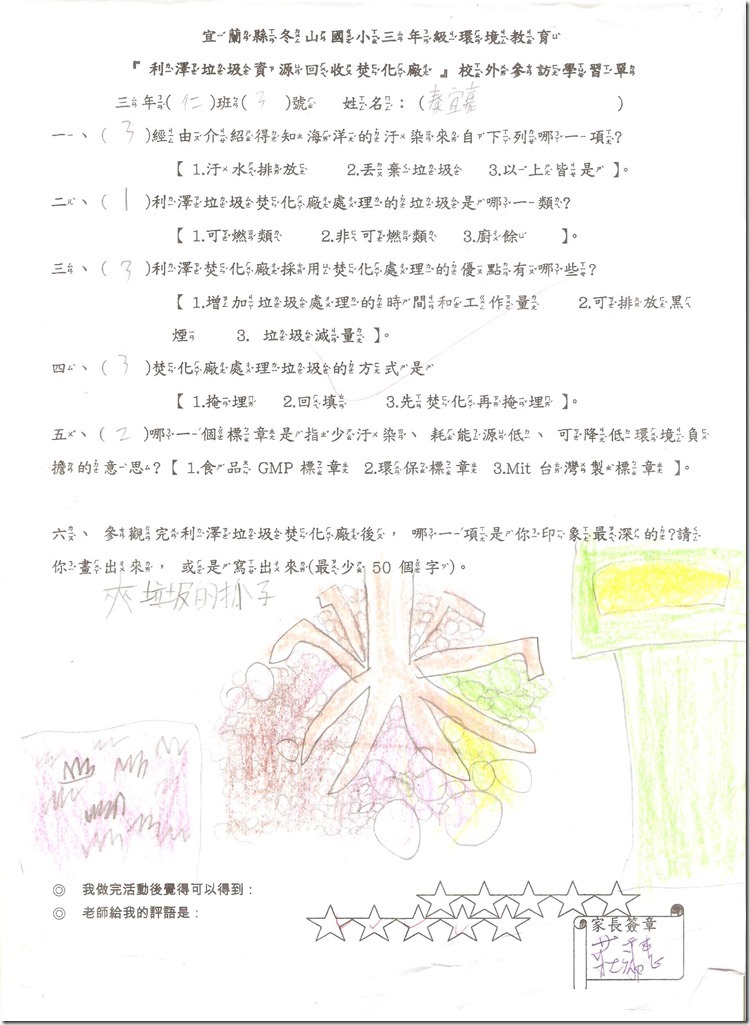 宜蘭縣冬山國小三年級環境教育
『 利澤垃圾資源回收焚化廠 』校外參訪學習單
三年(仁)班(3)號 姓名：(秦宜嘉 )
一、( 3 )經由介紹得知海洋的汙染來自下列哪一項?
【 1.汙水排放 2.丟棄垃圾 3.以上皆是 】。
二、( 1 )利澤垃圾焚化廠處理的垃圾是哪一類?
【 1.可燃類 2.非可燃類 3.廚餘 】。
三、( 3 )利澤焚化廠採用焚化處理的優點有哪些?
【 1.增加垃圾處理的時間和工作量 2.可排放黑
煙 3. 垃圾減量 】。
四、( 3 )焚化廠處理垃圾的方式是
【 1.掩埋 2.回填 3.先焚化再掩埋 】。
五、( 2 )哪一個標章是指少汙染、耗能源低、可降低環境負
擔的意思?【 1.食品 GMP 標章 2.環保標章 3.Mit 台灣製標章 】。
六、 參觀完利澤垃圾焚化廠後， 哪一項是你印象最深的?請
你畫出來， 或是寫出來(最少 50 個字)。
夾垃圾的抓子
◎ 我做完活動後覺得可以得到：
◎ 老師給我的評語是：
家長簽章